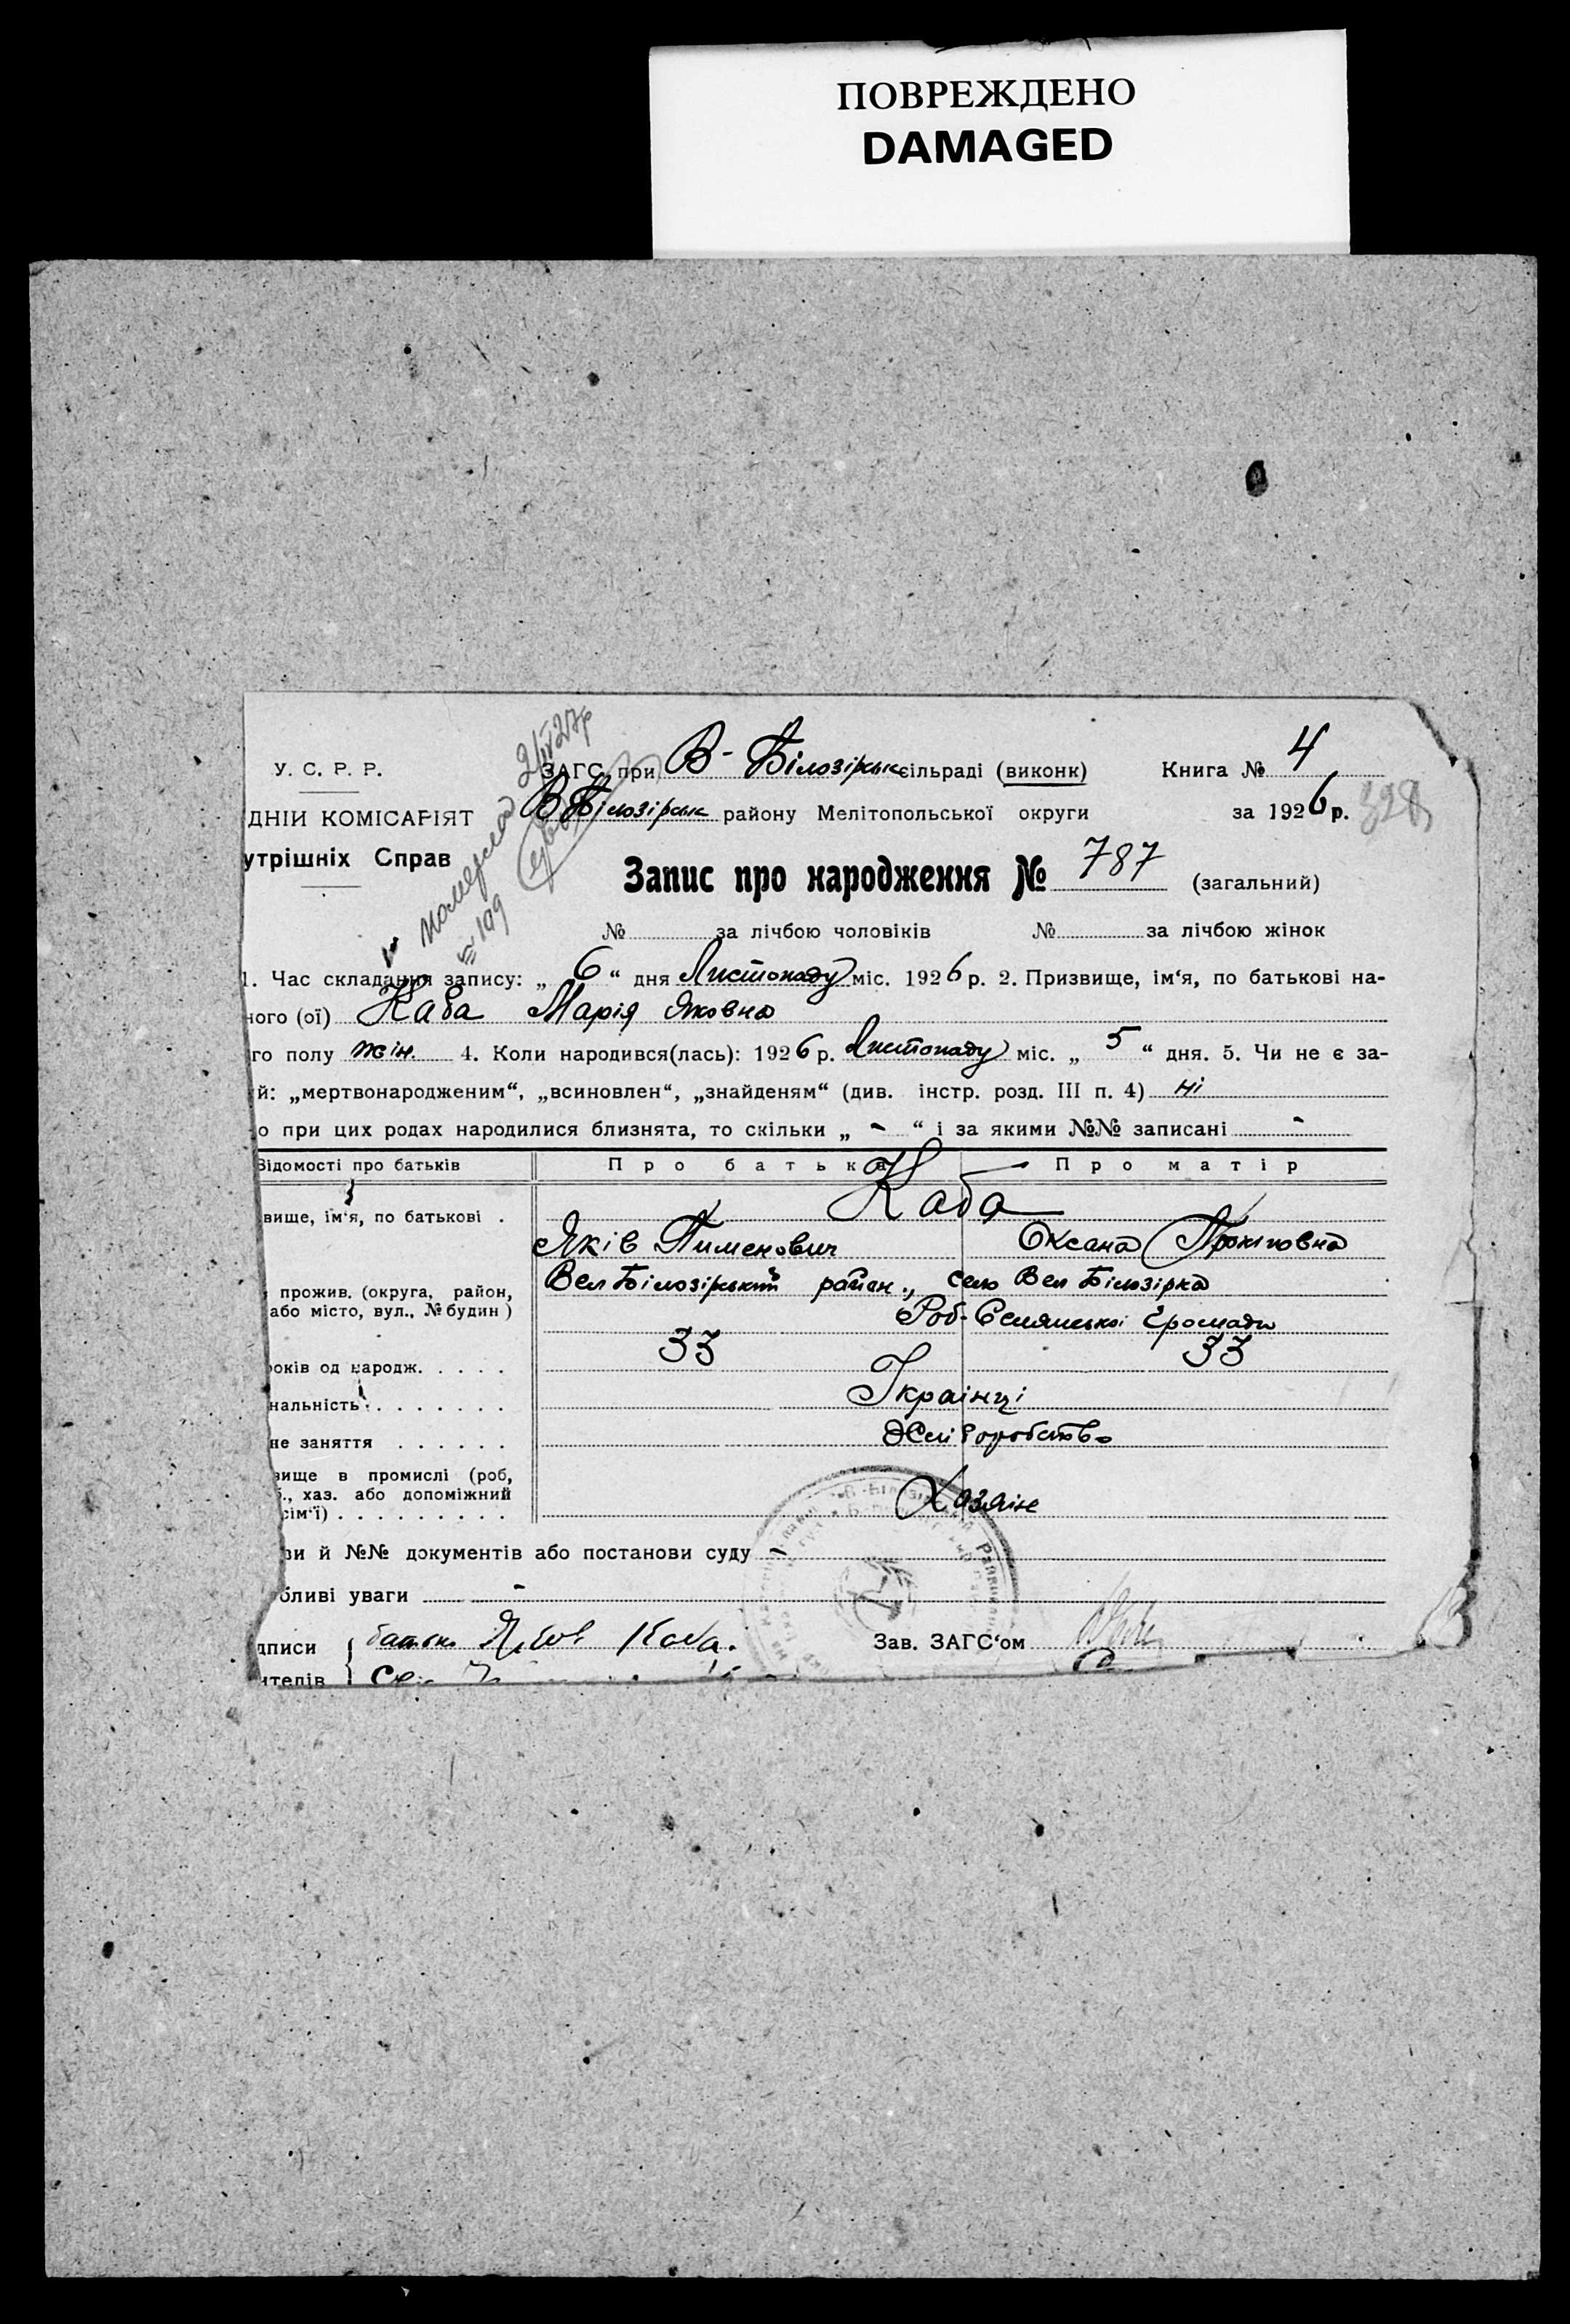 ПОВРЕЖДЕНО
DAMAGED
У. С. Р. Р.
ДНІЙ КОМІСАРІЯТ
утрішніх Справ
ЗАГС при В-Білозірськ сільраді (виконк)
В Білозірськ району Мелітопольської округи
Книга № 4
за 1926 р.
328
Запис про народження № 787 (загальний)
№ за лічбою чоловіків № за лічбою жінок
1. Час складання запису: „ 6 “ дня Листопаду міс. 1926 р. 2. Призвище, ім‘я, по батькові на-
ного (ої) Каба Марія Яковна
го полу жін. 4. Коли народився(лась): 1926 р. Листопаду міс. „ 5 “ дня. 5. Чи не є за-
й: „мертвонародженим“, „всиновлен“, „знайденям“ (див. інстр. розд. III п. 4) ні
о при цих родах народилися близнята, то скільки „ - “ і за якими №№ записані -
Відомості про батьків Про батька Про матір
Каба
вище, ім‘я, по батькові .
Яків Пименович Оксана
Вел Білозірський район., село Вел Білозірка
прожив. (округа, район,
або місто, вул., № будин )
Роб-Селянської Громади
33 33
років од народж. . . . .
Українці
нальність . . . . . . .
не заняття . . . . . .
Хліборобство
вище в промислі (роб,
., хаз. або допоміжний
сім‘ї) . . . . . . . . .
Хазяїне
ви й №№ документів або постанови суду -
бливі уваги -
дписи батько Яков Каба.
Зав. ЗАГС‘ом
ителів